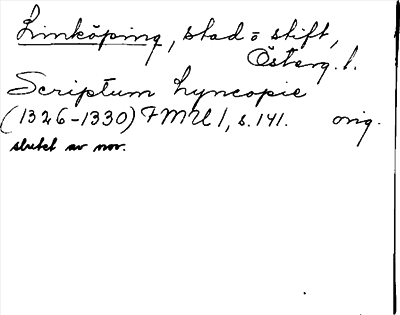 Linköping, stad = stift,
Österg. l.
Scriptum Lyncopie
(1326-1330) FMU 1, s. 141. orig.
slutet av nov.